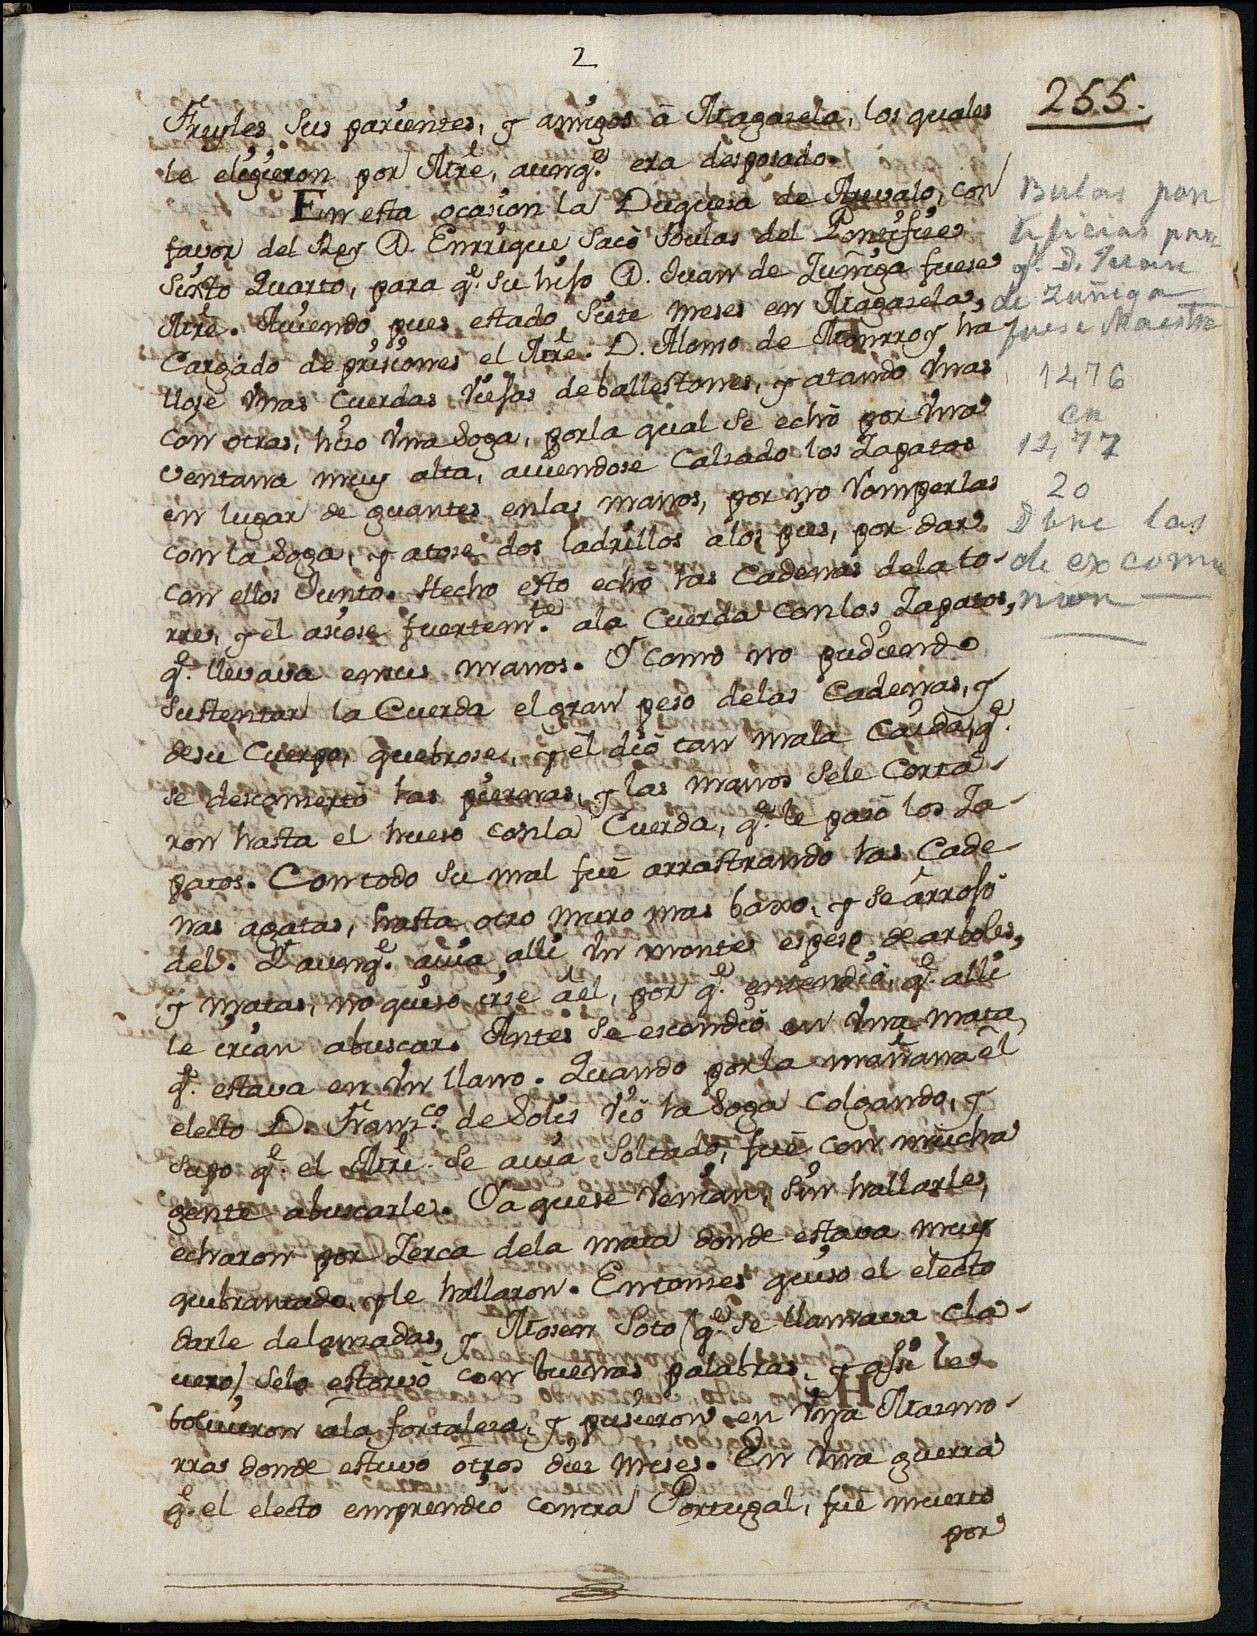 2
255.
Freyles sus parientes, y amigos â Magazela, los quales
le eligieron por Mre, aunq.e era desposado.
En esta ocasion la Duquesa de Arevalo, con
favor del Rey D. Enrrique sacô Bulas del Pontifize
Sixto Quarto, para q.e su hijo D. Juan de Zuñiga fuese
Mre. Aviendo pues estado siete meses en Magazela,
Cargado de prisiones el Mre. D. Alonso de Monrroy ha-
llose unas cuerdas viejas de ballestones, y atando unas
con otras, hizo una soga, por la qual se echô por una
ventana muy alta, aviendose calzado los Zapatos
en lugar de guantes en las manos, por no romperlas
con la soga, y atose dos ladrillos alos pies, por dar
con ellos Junto. Hecho esto echô las Cadenas dela to-
rre, y êl asiose fuertem.te ala Cuerda con los Zapatos,
q.e llevava en sus manos. Y como no pudiendo
sustentar la Cuerda el gran peso delas Cadenas, y
desu Cuerpo, quebrose, y êl diô tan mala Caida, q.e
se desconcertô las piernas, y las manos sele Corta-
ron hasta el hueso conla Cuerda, q.e le pasô los Za-
patos. Contodo su mal fuê arrastrando las Cade-
nas agatas, hasta otro muro mas baxo, y se arrojô
del. Y aunq.e avia alli un monte espeso de arboles,
y matas, no quiso irse âel, por q.e entendiô, q.e alli
le irian abuscar. Antes se escondiô en una mata
q.e estava en un llano. Quando porla mañana el
electo D. Fran.co de Solis viô la soga colgando, y
supo q.e el Mre. se avia soltado, fuê con mucha
gente abuscarle. Ya quese venian, sin hallarle,
echaron por Zerca dela mata donde estava muy
quebrantado, y le hallaron. Entonzes quiso el electo
darle delanzadas, y Mosen Soto (q.e se llamava cla-
vero) selo estorvô con buenas palabras, y assi le
bolvieron ala fortaleza, y pusieron en una Mazmo-
rras donde estuvo otros diez meses. En una guerra
q.e el electo emprendiô contra Portugal, fuê muerto
por
Bulas pon
tificias para
q.e D. Juan
de Zuñiga
fuese Maestre
1476
en
1477
20
las
de excomu
nion